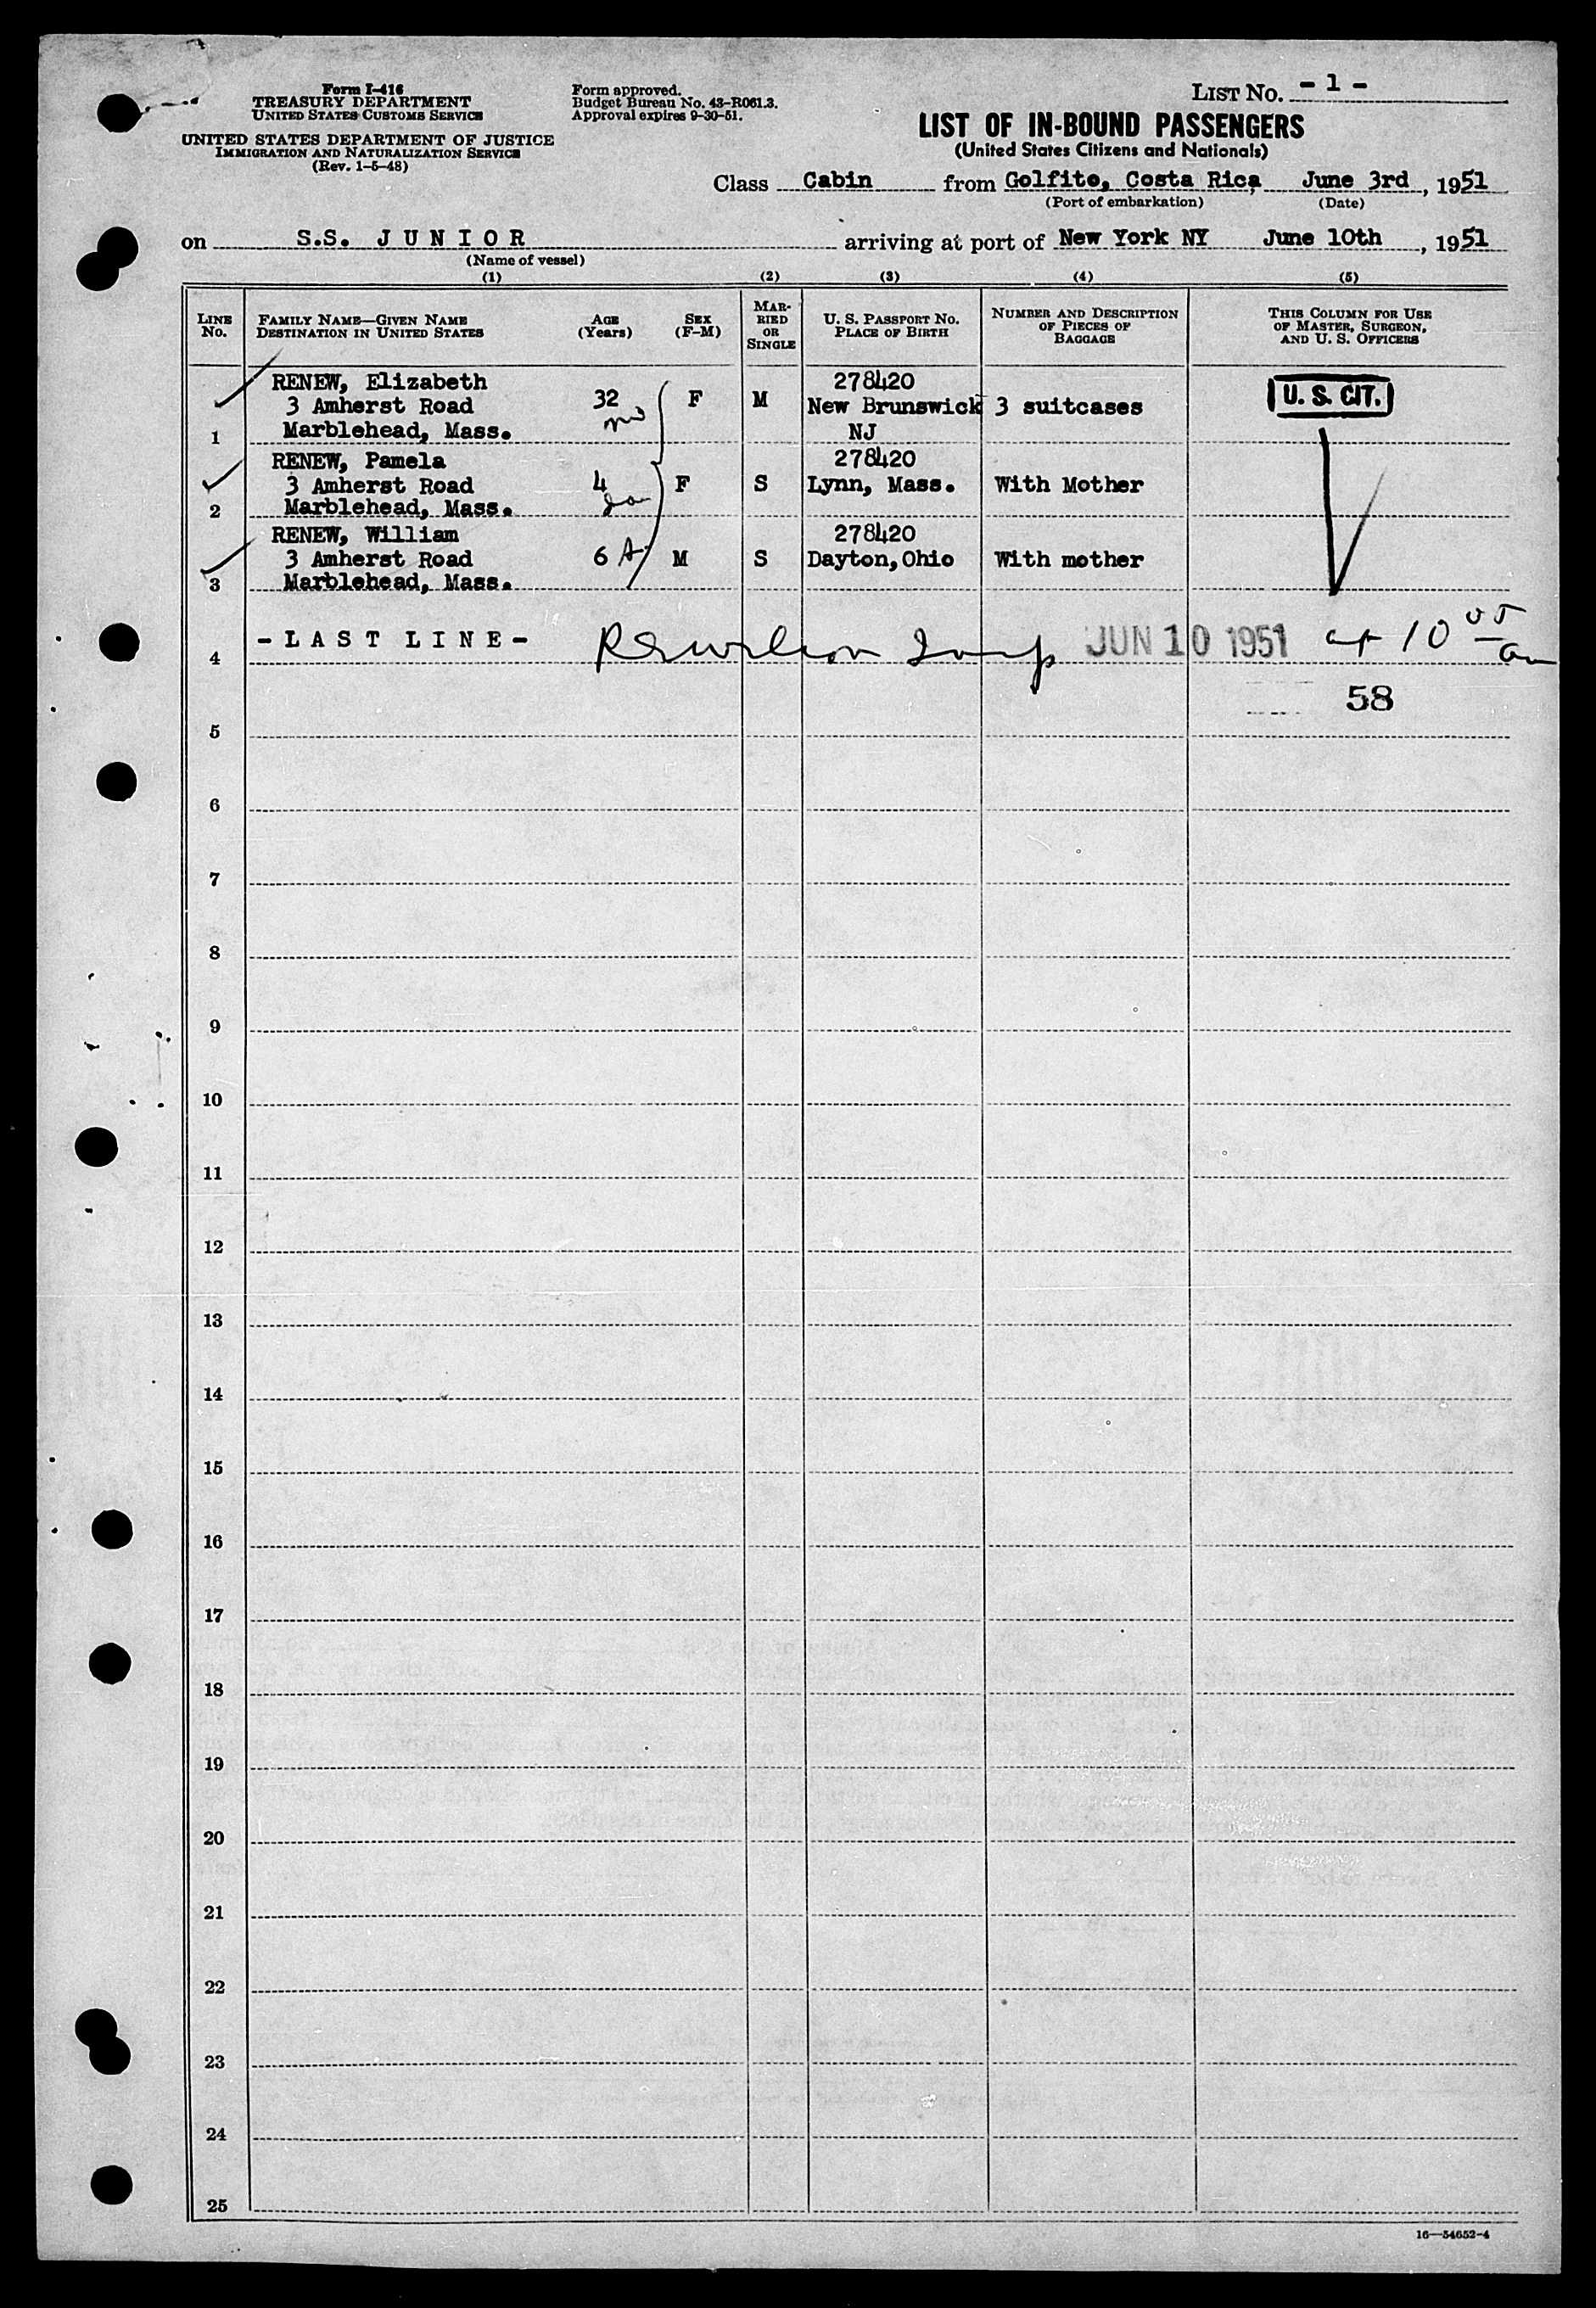 Form I-416
TREASURY DEPARTMENT
UNITED STATES CUSTOMS SERVICE
UNITED STATES DEPARTMENT OF JUSTICE
IMMIGRATION AND NATURALIZATION SERVICE
(Rev. 1-5-48)
Form approved.
Budget Bureau No. 43-R061.3.
Approval expires 9-30-51.
LIST NO. - 1 -
LIST OF IN-BOUND PASSENGERS
(United States Citizens and Nationals)
Class Cabin from Golfito, Costa Rica June 3rd, 1951
(Port of embarkation) (Date)
on S.S. JUNIOR arriving at port of New York NY June 10th, 1951
(Name of vessel)
(1) (2) (3) (4) (5)
LINE NO.
FAMILY NAME—GIVEN NAME
DESTINATION IN UNITED STATES
AGE (Years)
SEX (F-M)
MARRIED OR SINGLE
U. S. PASSPORT NO.
PLACE OF BIRTH
NUMBER AND DESCRIPTION OF PIECES OF BAGGAGE
THIS COLUMN FOR USE OF MASTER, SURGEON, AND U. S. OFFICERS
RENEW, Elizabeth 278420
3 Amherst Road 32 F M New Brunswick 3 suitcases U. S. CIT.
1 Marblehead, Mass. NJ
RENEW, Pamela 278420
3 Amherst Road 4 F S Lynn, Mass. With Mother
2 Marblehead, Mass.
RENEW, William 278420
3 Amherst Road 6 M S Dayton, Ohio With mother
3 Marblehead, Mass.
4 -LAST LINE- JUN 10 1951 at 10 05 am
58
5
6
7
8
9
10
11
12
13
14
15
16
17
18
19
20
21
22
23
24
25
16—54652-4